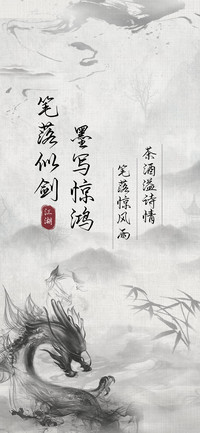 笔落似剑
墨写惊鸿
江湖
茶酒溢诗情
笔落惊风雨